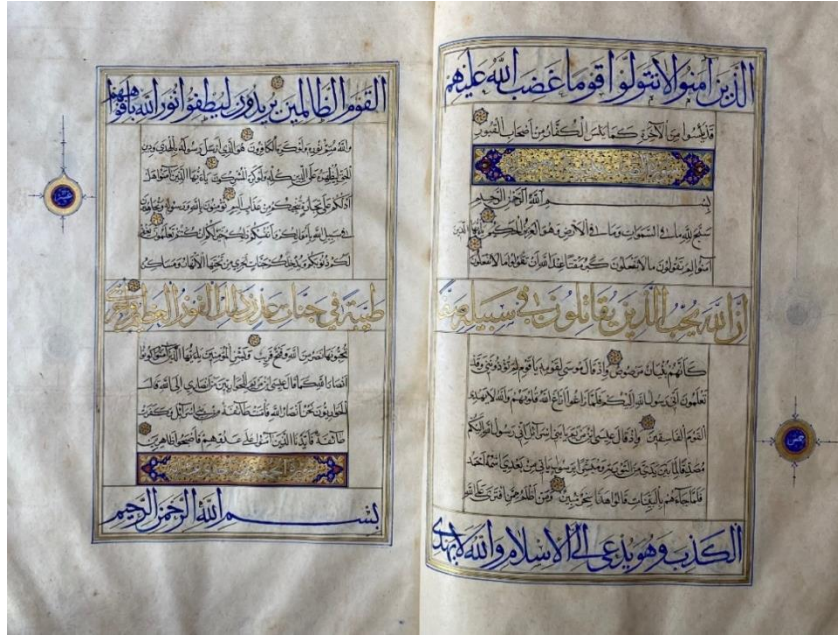 الذين امنوا لا تتولوا قوما غضب الله عليهم
قد يئسوا من الآخرة كما يئس الكفار من اصحاب القبور
بسم الله الرحمن الرحيم
سبح لله ما في السموات وما في الارض وهو العزيز الحكيم يا ايها الذين
آمنوا لم تقولون ما لا تفعلون كبر مقتا عند الله ان تقولوا ما لا تفعلون
ان الله يحب الذين يقاتلون في سبيله صفا
كأنهم بنيان مرصوص واذ قال موسى لقومه يا قوم لم تؤذونني وقد
تعلمون اني رسول الله اليكم فلما زاغوا ازاغ الله قلوبهم والله لا يهدي
القوم الفاسقين واذ قال عيسى ابن مريم يا بني اسرائيل اني رسول الله اليكم
مصدقا لما بين يدي من التورية ومبشرا برسول ياتي من بعدي اسمه احمد
فلما جاءهم بالبينات قالوا هذا سحر مبين ومن اظلم ممن افترى على الله
الكذب وهو يدعى الى الاسلام والله لا يهدي
القوم الظالمين يريدون ليطفئوا نور الله بافواههم
والله متم نوره ولو كره الكافرون هو الذي ارسل رسوله بالهدى ودين
الحق ليظهره على الدين كله ولو كره المشركون يا ايها الذين آمنوا هل
ادلكم على تجارة تنجيكم من عذاب اليم تؤمنون بالله ورسوله وتجاهدون
في سبيل الله باموالكم وانفسكم ذلكم خير لكم ان كنتم تعلمون يغفر
لكم ذنوبكم ويدخلكم جنات تجري من تحتها الانهار ومساكن
طيبة في جنات عدن ذلك الفوز العظيم واخرى
تحبونها نصر من الله وفتح قريب وبشر المؤمنين يا ايها الذين آمنوا كونوا
انصار الله كما قال عيسى ابن مريم للحواريين من انصاري الى الله قال
الحواريون نحن انصار الله فآمنت طائفة من بني اسرائيل وكفرت
طائفة فايدنا الذين آمنوا على عدوهم فاصبحوا ظاهرين
بسم الله الرحمن الرحيم